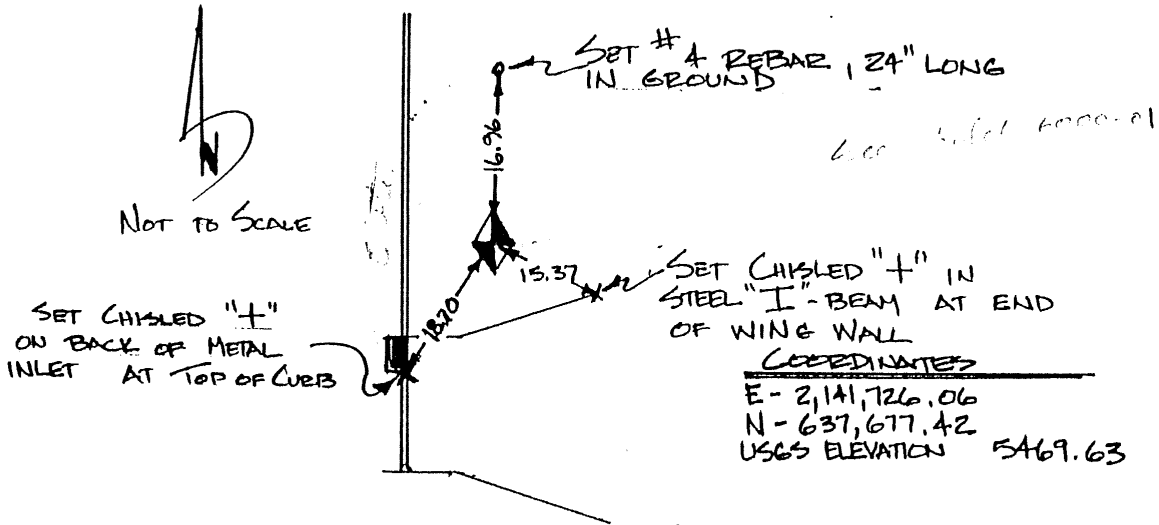 SET # 4 REBAR, 24" LONG
IN GROUND
16.96
N
NOT TO SCALE
15.37
SET CHISLED "+" IN
STEEL "I"-BEAM AT END
OF WING WALL
18.20
SET CHISLED "+"
ON BACK OF METAL
INLET AT TOP OF CURB
COORDINATES
E - 2,141,726.06
N - 637,677.42
USGS ELEVATION 5469.63